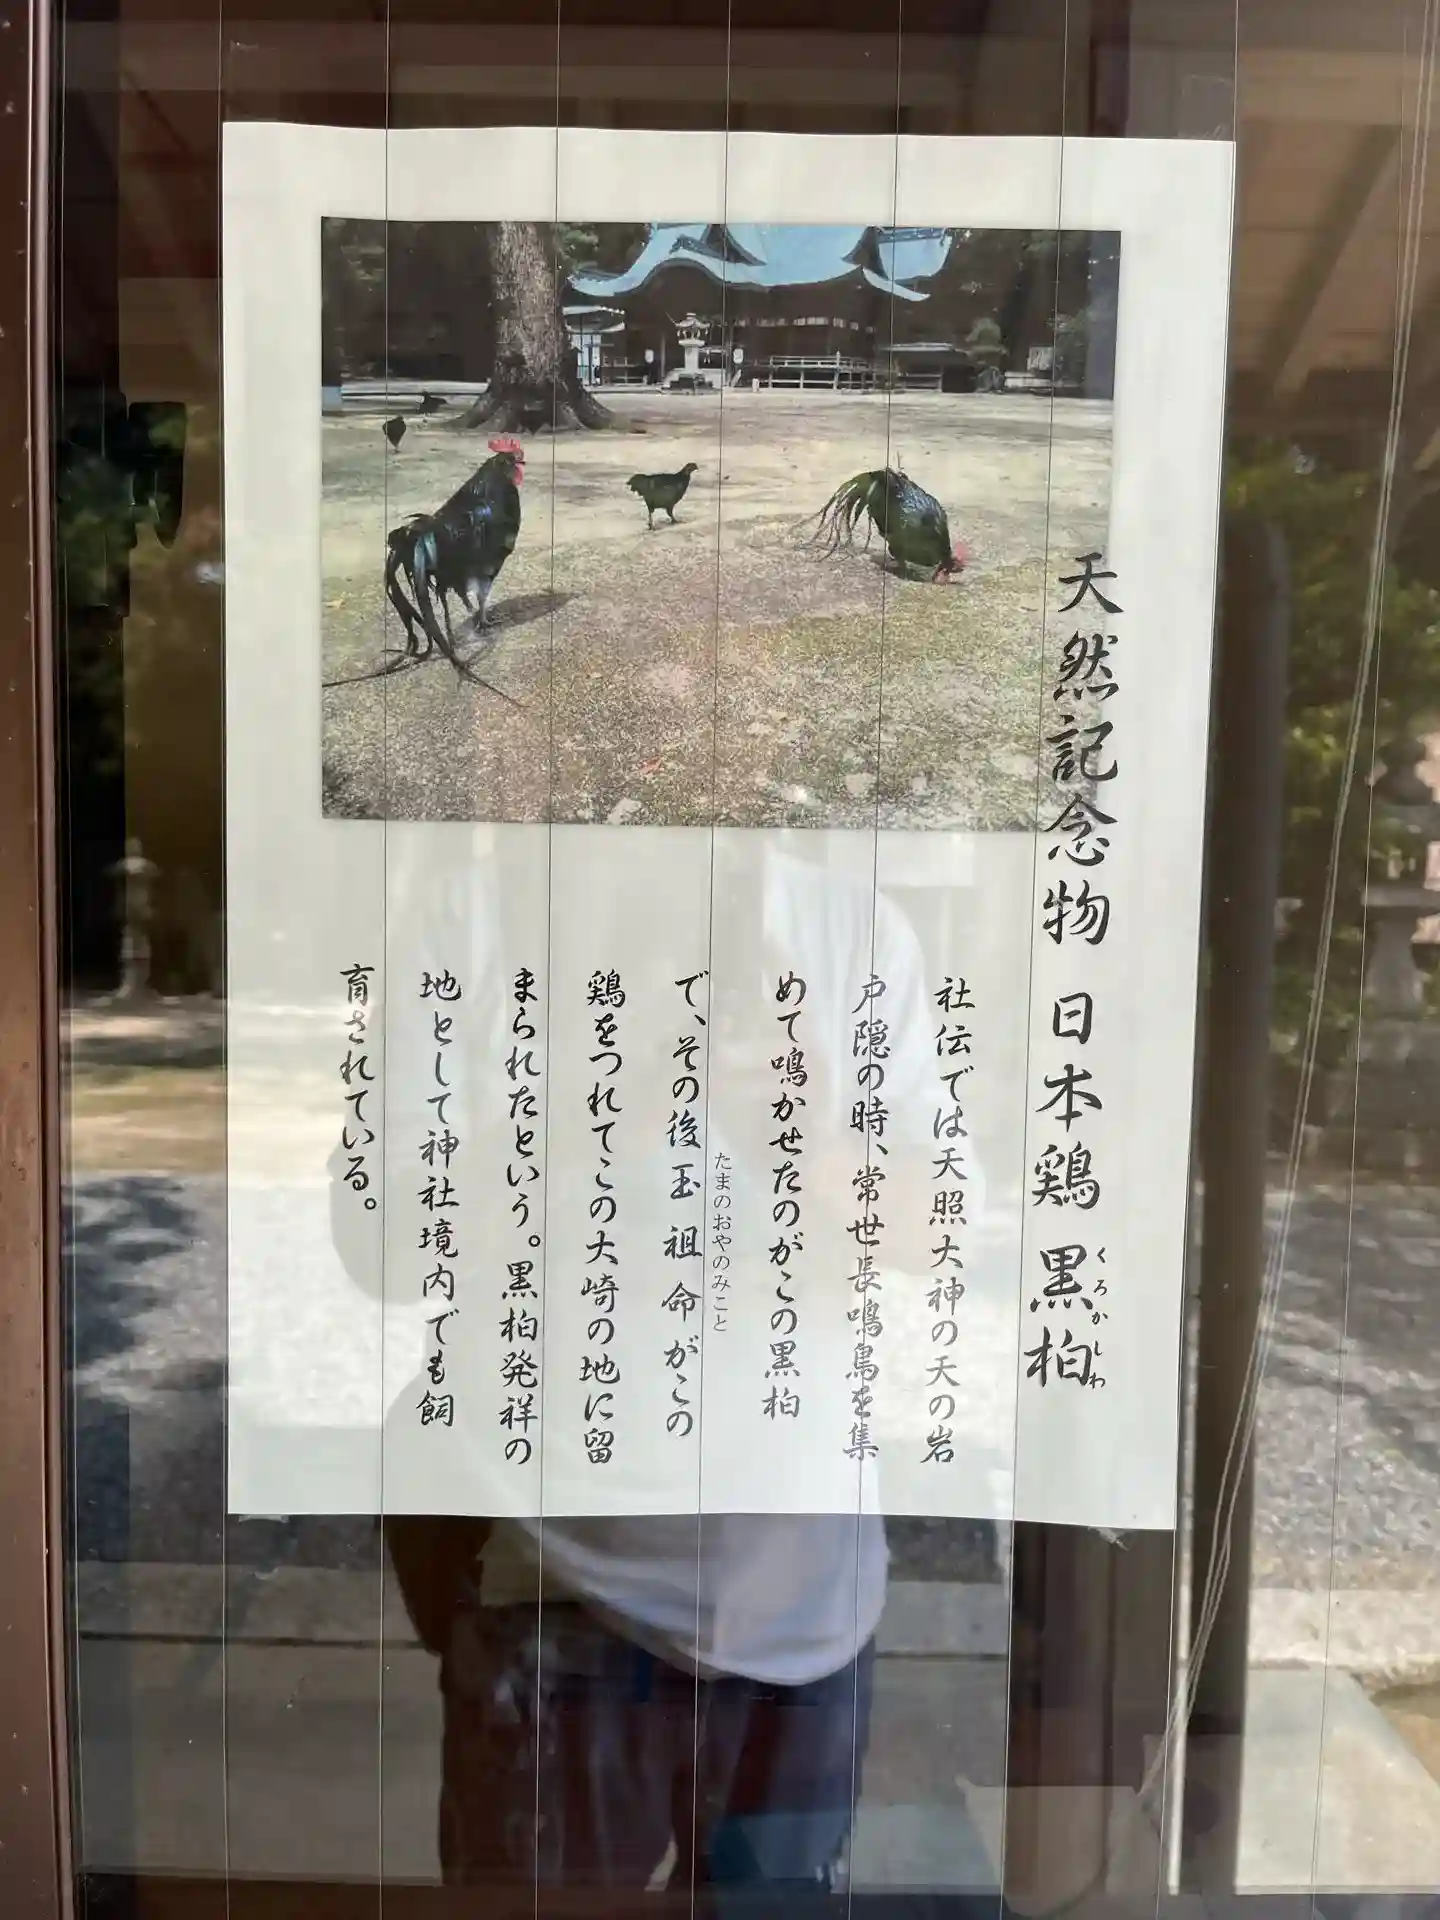 天然記念物 日本鶏 黒柏
くろかしわ
社伝では天照大神の天の岩
戸隠の時、常世長鳴鳥を集
めて鳴かせたのがこの黒柏
で、その後玉祖命がこの
たまのおやのみこと
鶏をつれてこの大崎の地に留
まられたという。黒柏発祥の
地として神社境内でも飼
育されている。